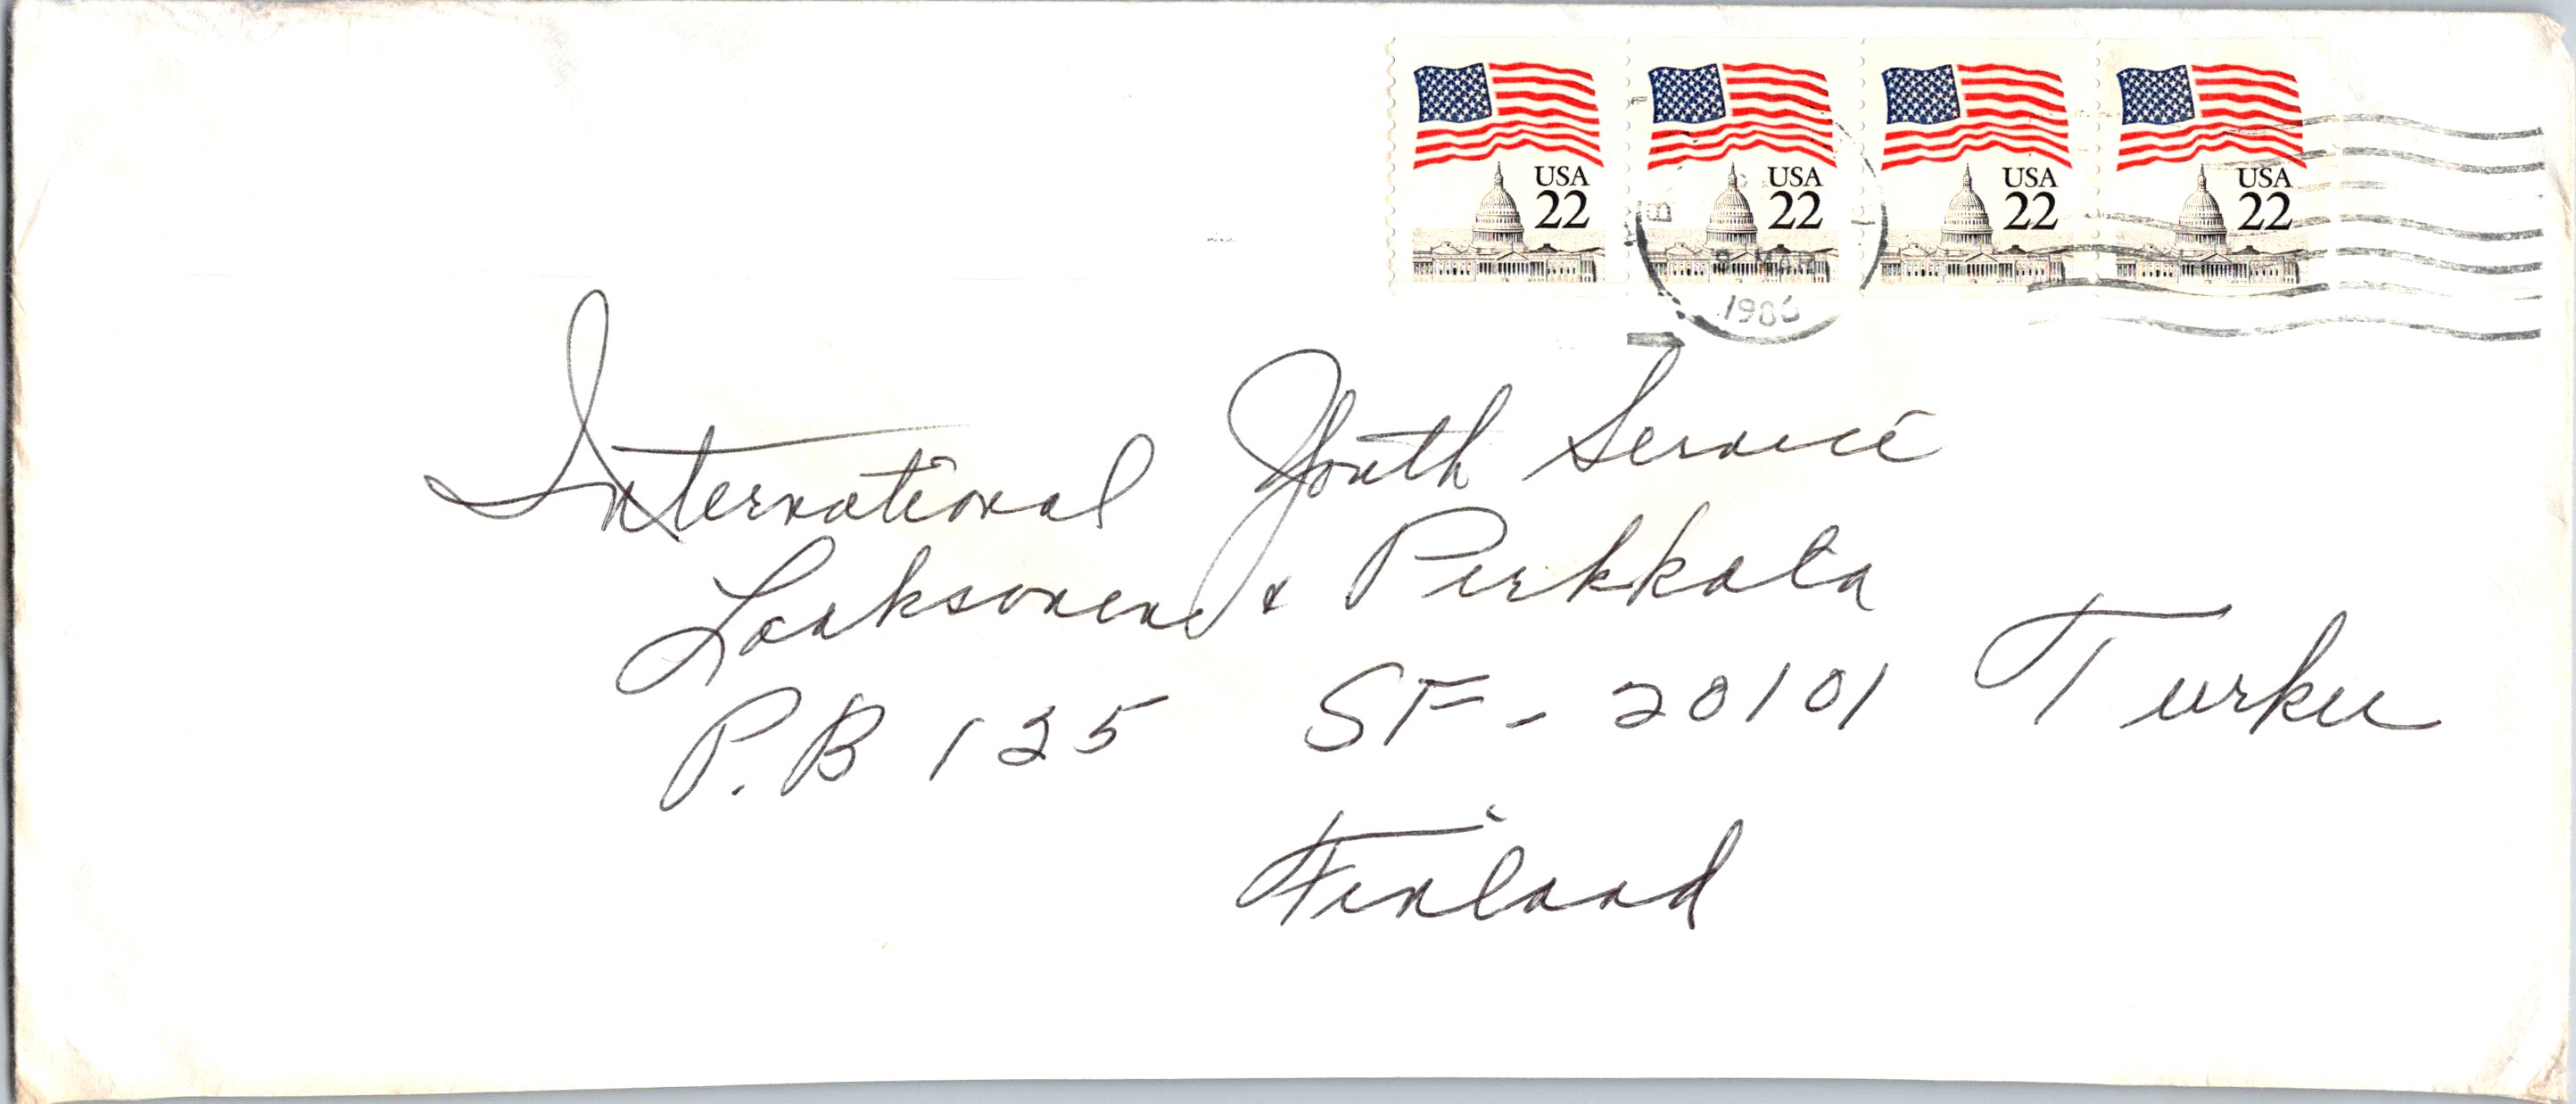 USA 22 USA 22 USA 22 USA 22
MAR
International Youth Service
Laaksonen & Pirkkala
P.B 125 SF - 20101 Turku
Finland